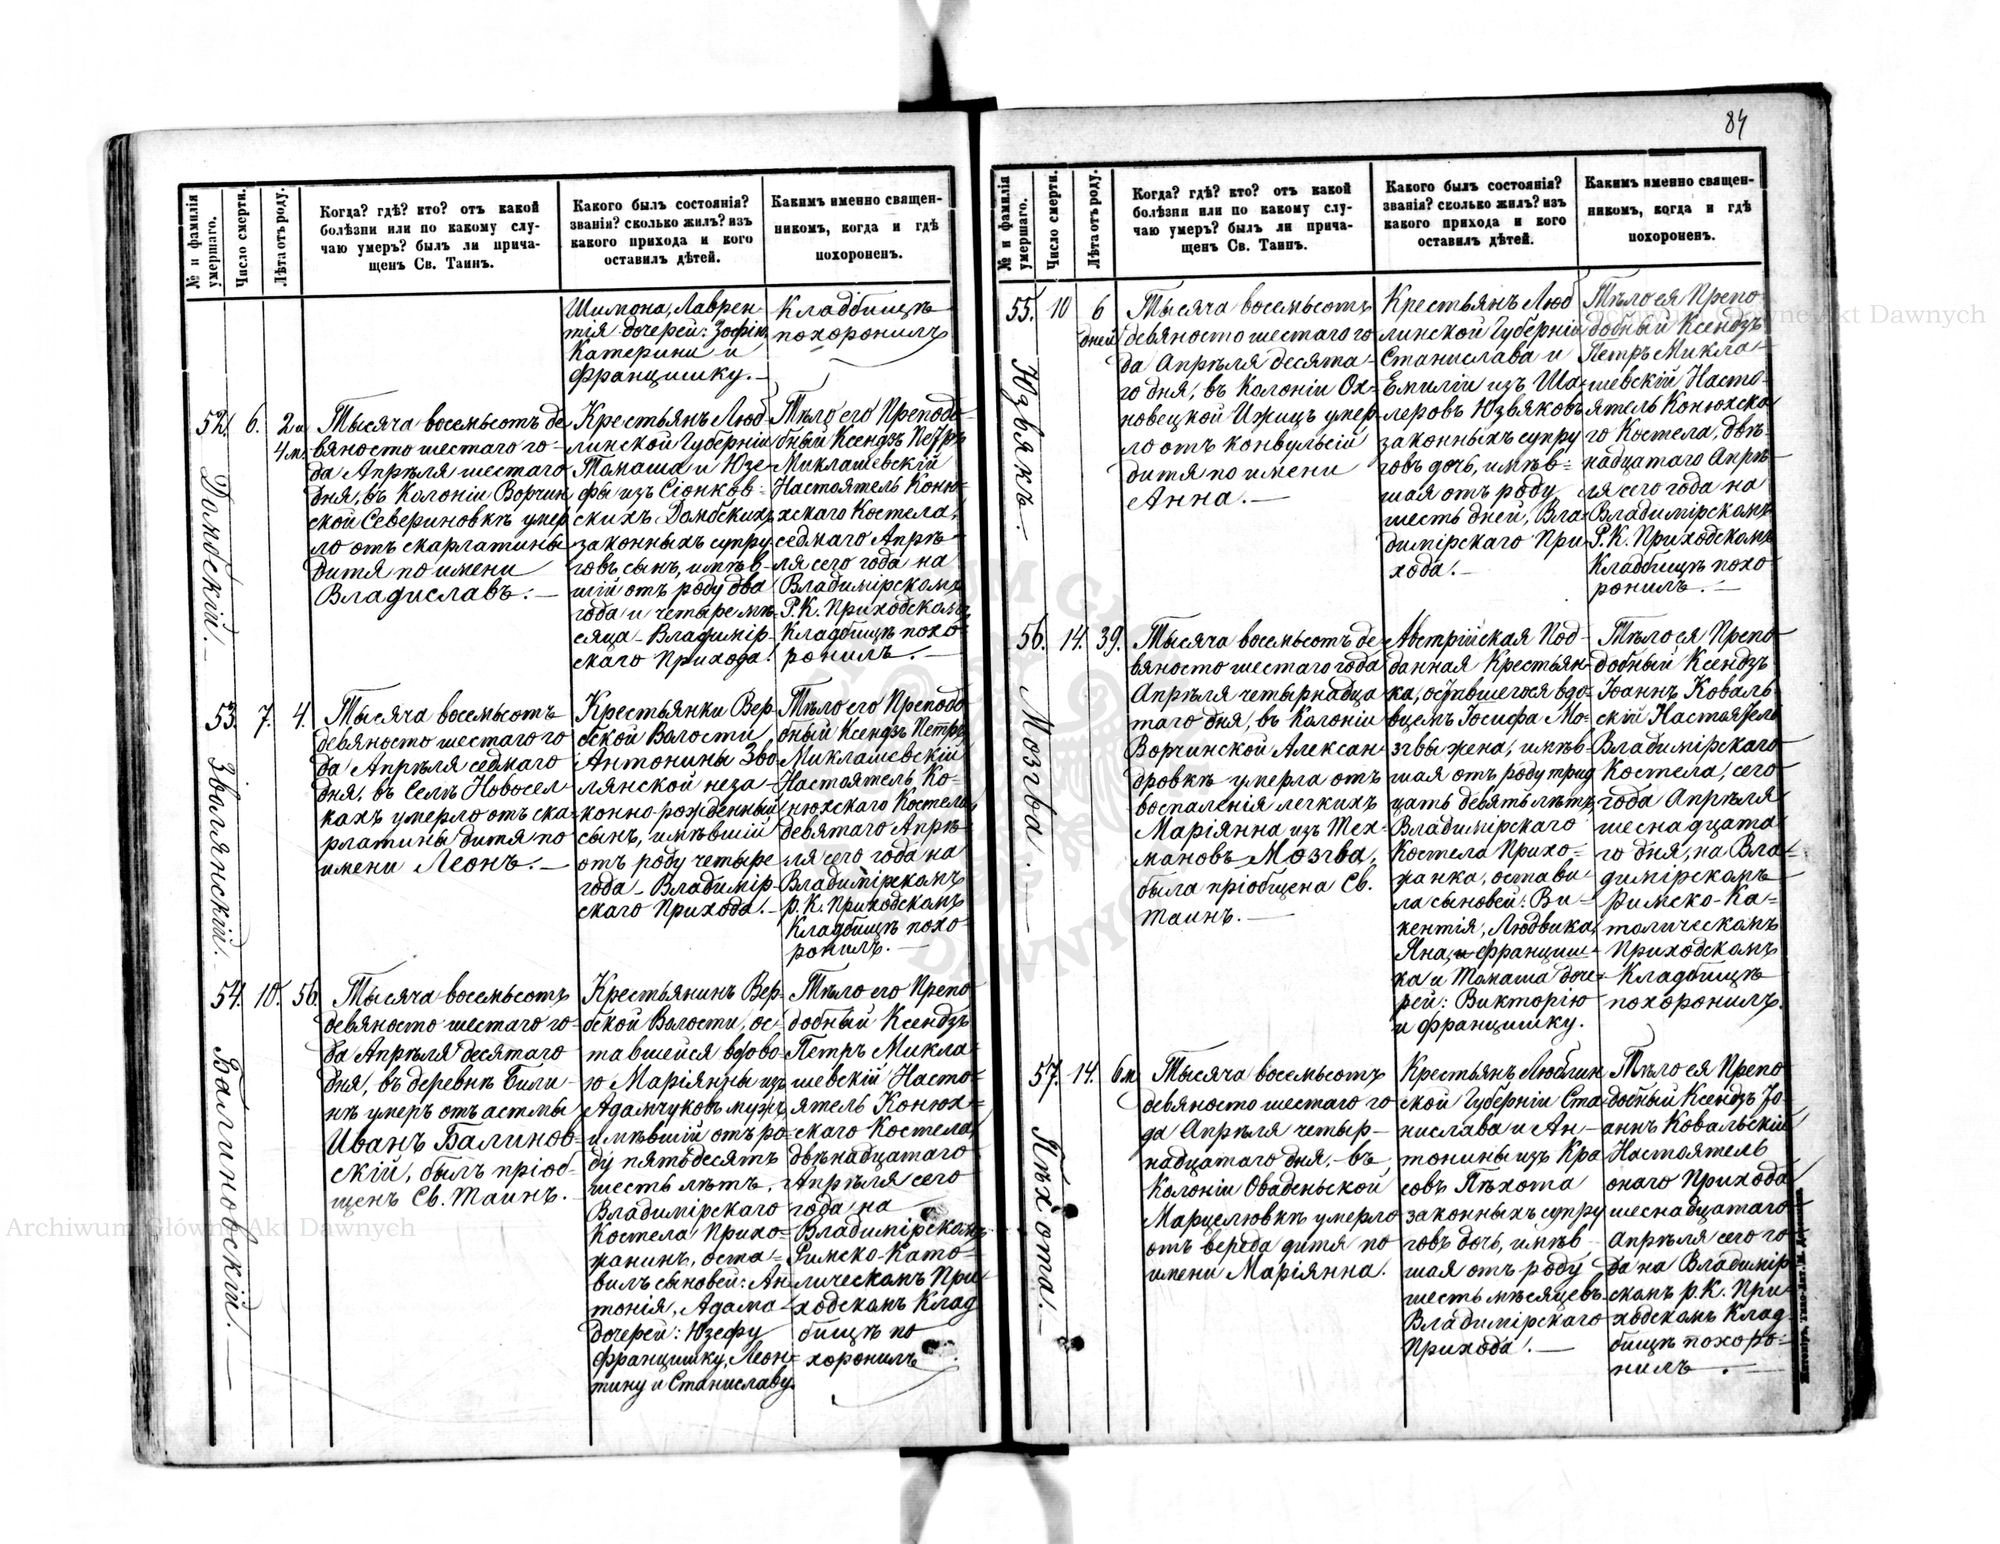 84
№ и фамилія умершаго.
Число смерти.
Лѣта отъ роду.
Когда? гдѣ? кто? отъ какой
болѣзни или по какому слу-
чаю умеръ? былъ ли прича-
щенъ Св. Таинъ.
Какого былъ состоянія?
званія? сколько жилъ? изъ
какого прихода и кого
оставилъ дѣтей.
Какимъ именно священ-
никомъ, когда и гдѣ
похороненъ.
Шимона, Лаврен-
тія дочерей: Зофію,
Катерини и
Францишку.—
Кладбищѣ
похоронилъ
52. 6. 2 и
4 м.
Домбскій.—
Тысяча восемьсотъ де
вяносто шестаго го-
да Апрѣля шестаго
дня, въ Колоніи Ворчин
ской Севериновкѣ умер
ло отъ скарлатины
дитя по имени
Владиславъ.—
Крестьянъ Люб
линской Губерніи
Томаша и Юзе-
фы изъ Сіонков-
скихъ Домбскихъ
законныхъ супру
говъ сынъ, имѣв-
шій отъ роду два
года и четыре мѣ-
сяца - Владимір-
скаго Прихода.
Тѣло его Преподо-
бный Ксендзъ Петръ
Миклашевскій
Настоятель Коню-
хскаго Костела,
седмаго Апрѣ-
ля сего года на
Владимірскомъ
Р.К. Приходскомъ
Кладбищѣ похо
ронилъ.—
53. 7. 4.
Зволянскій.
Тысяча восемьсотъ
девяносто шестаго го
да Апрѣля седмаго
дня, въ Селѣ Новосел-
кахъ умерло отъ ска-
рлатины дитя по
имени Леонъ.—
Крестьянки Вер-
бской Волости
Антонины Зво-
лянской неза-
конно-рожденный
сынъ, имѣвшій
отъ роду четыре
года - Владимір-
скаго Прихода.—
Тѣло его Преподо
бный Ксендзъ Петръ
Миклашевскій
Настоятель Ко-
нюхскаго Костела
девятаго Апрѣ-
ля сего года на
Владимірскомъ
р. К. Приходскомъ
Кладбищѣ похо-
ронилъ.—
54. 10. 56.
Балиновскій.—
Тысяча восемьсотъ
девяносто шестаго го-
да Апрѣля десятаго
дня, въ деревнѣ Били-
нѣ умеръ отъ астмы
Иванъ Балинов-
скій, былъ пріоб-
щенъ Св. Таинъ.
Крестьянинъ Вер-
бской Волости, ос-
тавшейся вдово-
ю Маріянны изъ
Адамчуковъ мужъ,
имѣвшій отъ ро-
ду пятьдесятъ
шесть лѣтъ,
Владимірскаго
Костела Прихо-
жанинъ, оста-
вилъ сыновей: Ан-
тонія, Адама-
дочерей: Юзефу
Францишку, Леон-
тину и Станиславу.
Тѣло его Препо
добный Ксендзъ
Петръ Микла-
шевскій Насто-
ятель Конюх-
скаго Костела,
двѣнадцатаго
Апрѣля сего
года на
Владимірскомъ
Римско-Като-
лическомъ При-
ходскомъ Клад
бищѣ по
хоронилъ
№ и фамилія умершаго.
Число смерти.
Лѣта отъ роду.
Когда? гдѣ? кто? отъ какой
болѣзни или по какому слу-
чаю умеръ? былъ ли прича-
щенъ Св. Таинъ.
Какого былъ состоянія?
званія? сколько жилъ? изъ
какого прихода и кого
оставилъ дѣтей.
Какимъ именно священ-
никомъ, когда и гдѣ
похороненъ.
55. 10 6
дней
Юзьякъ.—
Тысяча восемьсотъ
девяносто шестаго го
да Апрѣля десята-
го дня, въ Колоніи Ох-
новецкой Ижищъ умер
ло отъ конвульсіи
дитя по имени
Анна.—
Крестьянъ Люб
линской Губерніи
Станислава и
Емиліи изъ Ша-
леровъ Юзьяковъ
законныхъ супру
говъ дочь, имѣв-
шая отъ роду
шесть дней, Вла-
димірскаго При
хода.—
Тѣло ея Препо-
добный Ксендзъ
Петръ Микла-
шевскій Насто-
ятель Конюхска
го Костела, двѣ-
надцатаго Апрѣ-
ля сего года на
Владимірскомъ
Р.К. Приходскомъ
Кладбищѣ похо
ронилъ.—
56. 14. 39.
Мозгва.—
Тысяча восемьсотъ де-
вяносто шестаго года
Апрѣля четырнадца
таго дня, въ Колоніи
Ворчинской Алексан-
дровкѣ умерла отъ
воспаленія легкихъ
Маріянна изъ Тех-
мановъ Мозгва,
была пріобщена Св.
Таинъ.—
Австрійская Под-
данная Крестьян-
ка, оставшегося вдо-
вцемъ Іосифа Мо-
згвы жена, имѣв-
шая отъ роду трид
цать девять лѣтъ,
Владимірскаго
Костела Прихо-
жанка, остави-
ла сыновей: Ви-
кентія, Людвика,
Яна, и Францишка
и Томаша доче-
рей: Викторію
и Францишку.
Тѣло ея Препо
добный Ксендзъ
Іоаннъ Коваль-
скій Настоятель
Владимірскаго
Костела, сего
года Апрѣля
шеснадцата
го дня, на Вла-
димірскомъ
Римско-Ка-
толическомъ
Приходскомъ
Кладбищѣ
похоронилъ.
57. 14. 6 м
Пѣхота.—
Тысяча восемьсотъ
девяносто шестаго го
да Апрѣля четыр-
надцатаго дня, - въ
Колоніи Оваденьской
Марцелювкѣ умерло
отъ вереда дитя по
имени Маріянна.
Крестьянъ Люблин
ской Губерніи Ста-
нислава и Ан-
тонины изъ Кра
совъ Пѣхота
законныхъ супру
говъ дочь, имѣв-
шая отъ роду
шесть мѣсяцевъ
Владимірскаго
Прихода.—
Тѣло ея Препо
добный Ксендзъ Іо-
аннъ Ковальскій
Настоятель
онаго Прихода
шеснадцатаго
Апрѣля сего го
да на Владимір
скомъ р. К. При-
ходскомъ Клад-
бищѣ похоро-
нилъ.—
Archiwum Główne Akt Dawnych
Archiwum Główne Akt Dawnych